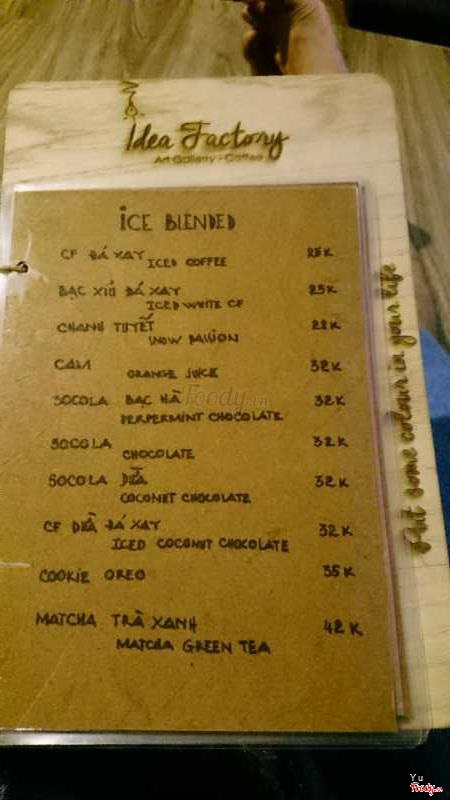 Idea Factory
Art Gallery - Coffee
ICE BLENDED
CF ĐÁ XAY 25K
ICED COFFEE
BẠC XIỦ ĐÁ XAY 25K
ICED WHITE CF
CHANH TUYẾT 22K
SNOW PASSION
CAM 32K
ORANGE JUICE
SOCOLA BẠC HÀ 32K
PERPERMINT CHOCOLATE
SOCOLA 32K
CHOCOLATE
SOCOLA DỪA 32K
COCONET CHOCOLATE
CF DỪA ĐÁ XAY 32K
ICED COCONUT CHOCOLATE
COOKIE OREO 35K
MATCHA TRÀ XANH 42K
MATCHA GREEN TEA
Put some colour in your life
Foody.vn
Yu
Foody.vn